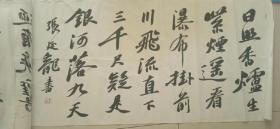 日照香爐生
紫煙遥看
瀑布掛前
川飛流直下
三千尺疑是
銀河落九天
張延龍書